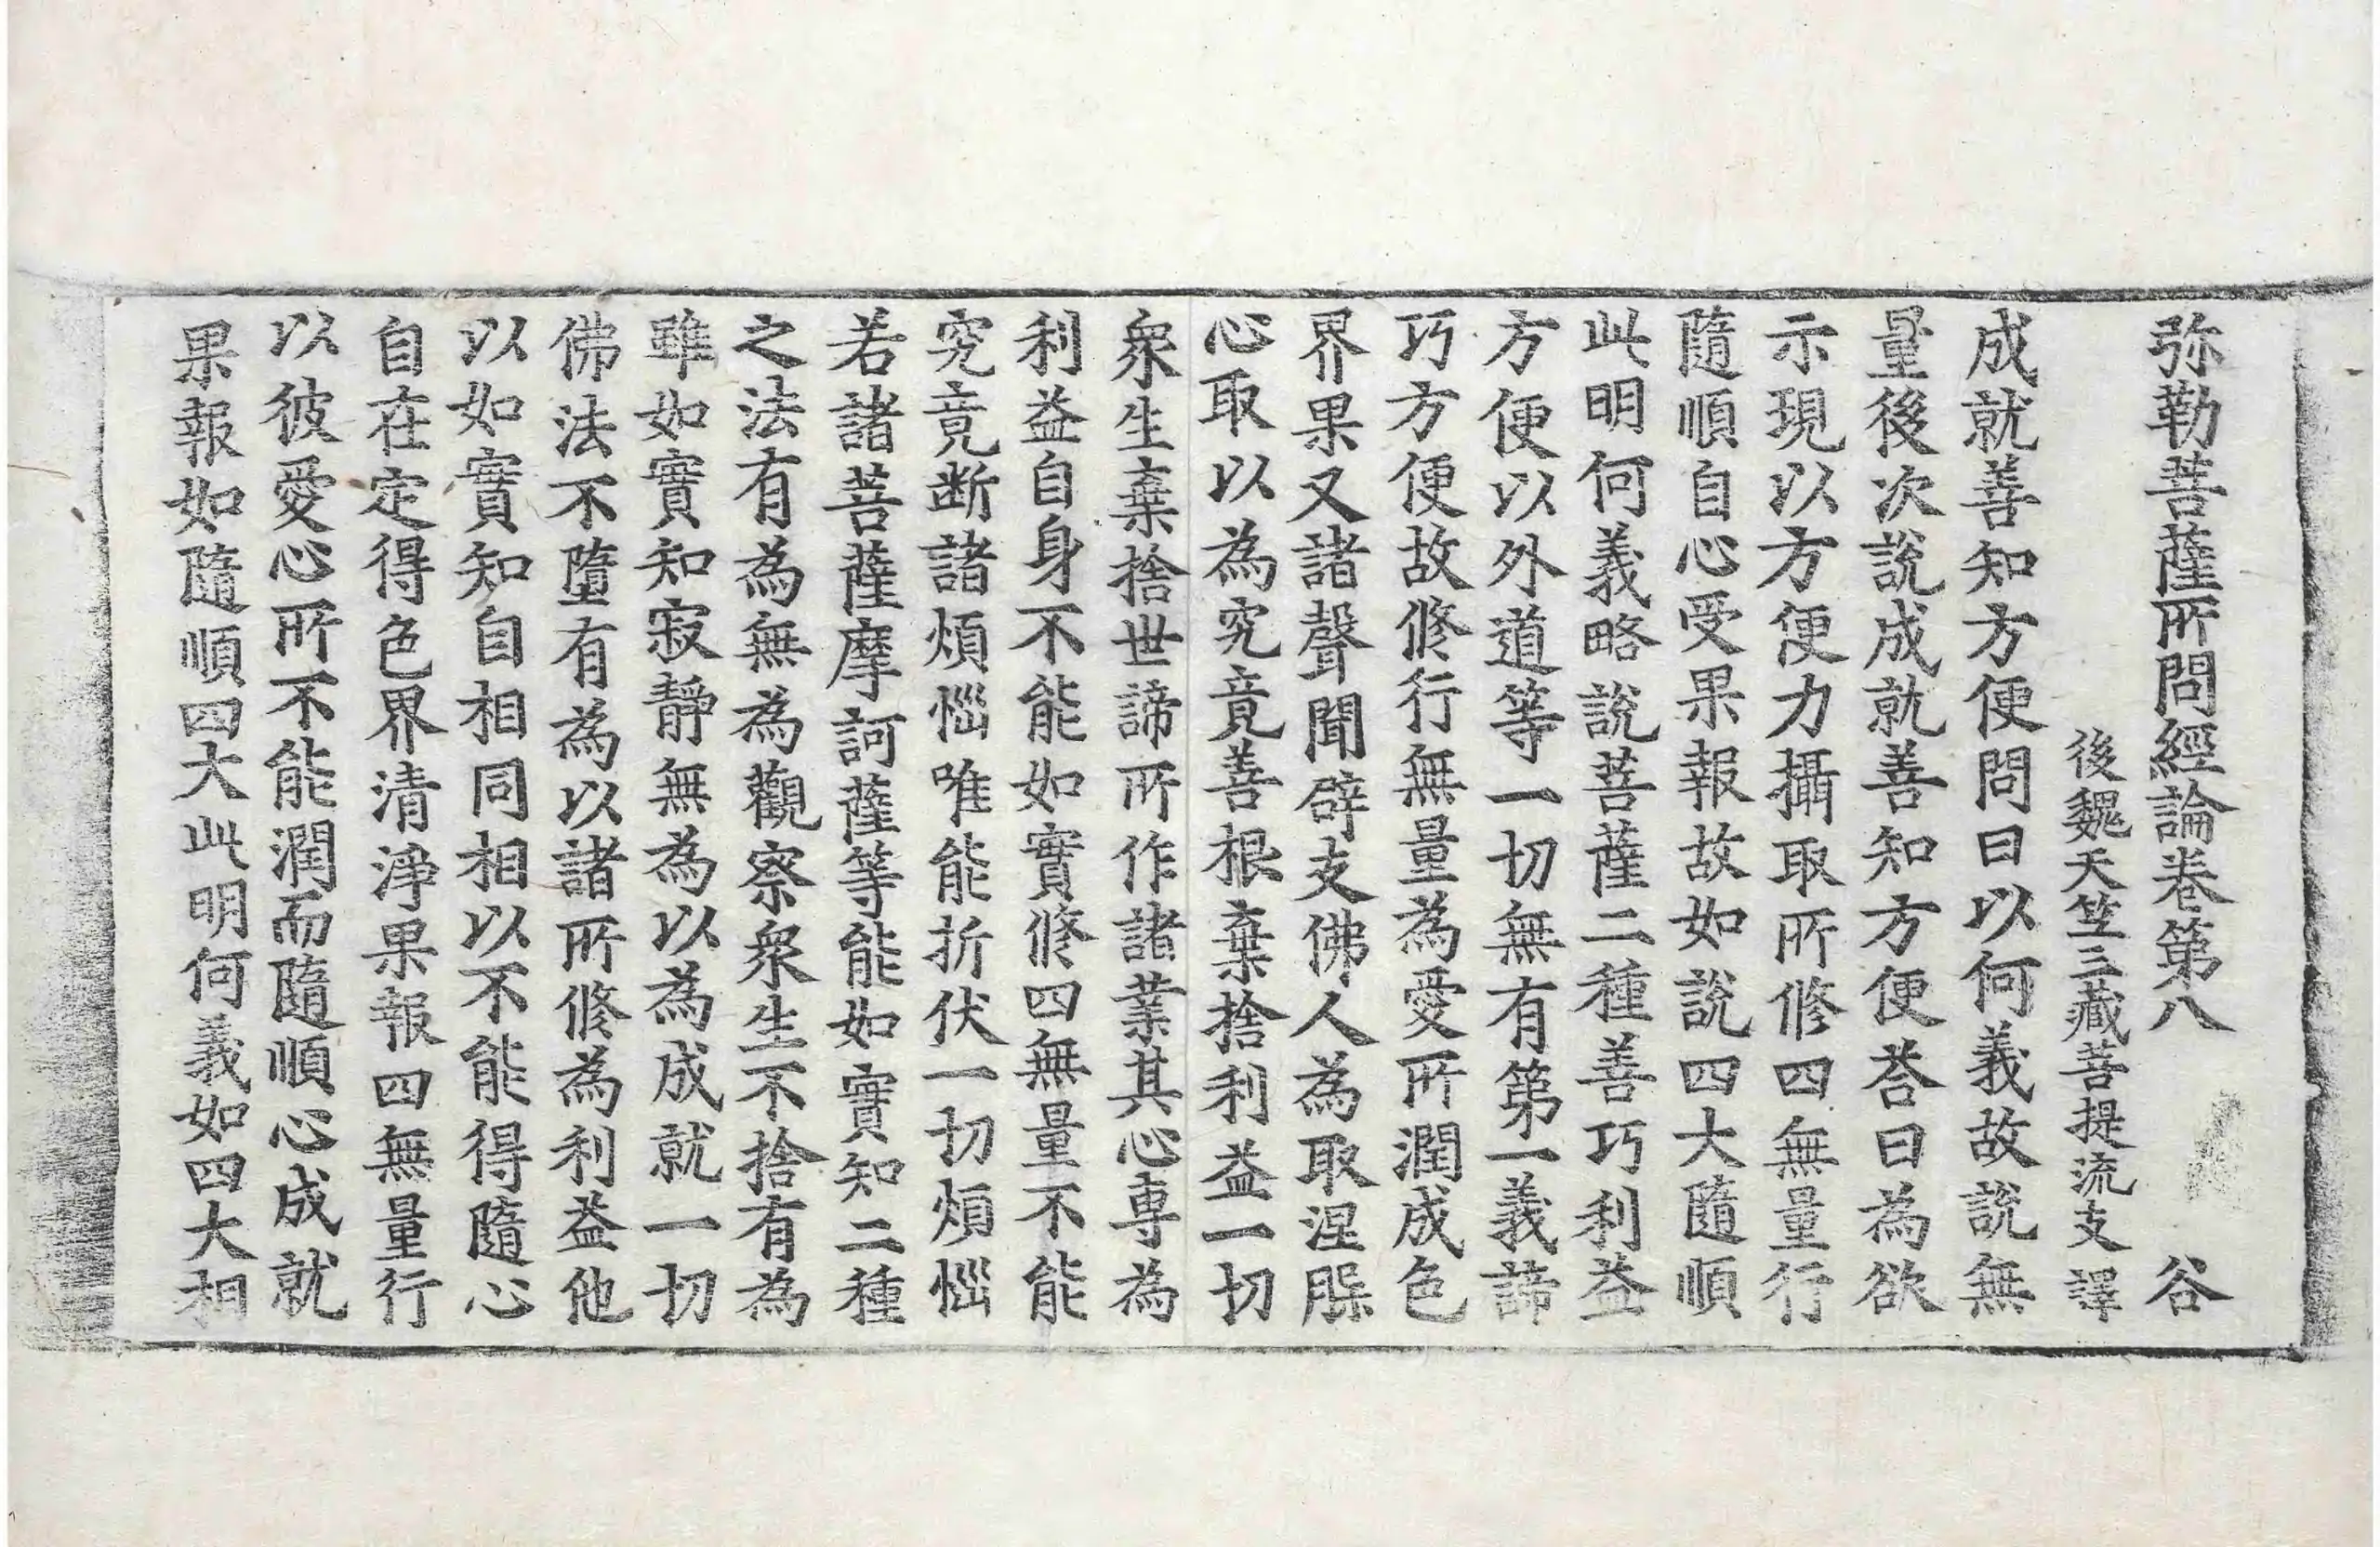 弥勒菩薩所問經論卷第八 谷
後魏天竺三藏菩提流支譯
成就善知方便問曰以何義故說無
量後次說成就善知方便荅曰為欲
示現以方便力攝取所修四無量行
隨順自心受果報故如說四大隨順
此明何義略說菩薩二種善巧利益
方便以外道等一切無有第一義諦
巧方便故修行無量為愛所潤成色
界果又諸聲聞辟支佛人為取涅槃
心取以為究竟善根棄捨利益一切
衆生棄捨世諦所作諸業其心專為
利益自身不能如實修四無量不能
究竟断諸煩惱唯能折伏一切煩惱
若諸菩薩摩訶薩等能如實知二種
之法有為無為觀察衆生不捨有為
雖如實知寂靜無為以為成就一切
佛法不墮有為以諸所修為利益他
以如實知自相同相以不能得隨心
自在定得色界清淨果報四無量行
以彼愛心所不能潤而隨順心成就
果報如隨順四大此明何義如四大相